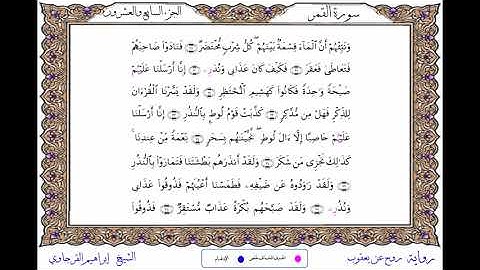 سورة القمر
الجزء السابع والعشرون
وَنَبِّئْهُمْ أَنَّ ٱلْمَآءَ قِسْمَةٌۢ بَيْنَهُمْ كُلُّ شِرْبٍ مُّحْتَضَرٌ فَنَادَوْا۟ صَاحِبَهُمْ
فَتَعَاطَىٰ فَعَقَرَ فَكَيْفَ كَانَ عَذَابِى وَنُذُرِ إِنَّآ أَرْسَلْنَا عَلَيْهِمْ
صَيْحَةً وَٰحِدَةً فَكَانُوا۟ كَهَشِيمِ ٱلْمُحْتَظِرِ وَلَقَدْ يَسَّرْنَا ٱلْقُرْءَانَ
لِلذِّكْرِ فَهَلْ مِن مُّدَّكِرٍ كَذَّبَتْ قَوْمُ لُوطٍۭ بِٱلنُّذُرِ إِنَّآ أَرْسَلْنَا
عَلَيْهِمْ حَاصِبًا إِلَّآ ءَالَ لُوطٍ نَّجَّيْنَٰهُم بِسَحَرٍ نِّعْمَةً مِّنْ عِندِنَا
كَذَٰلِكَ نَجْزِى مَن شَكَرَ وَلَقَدْ أَنذَرَهُم بَطْشَتَنَا فَتَمَارَوْا۟ بِٱلنُّذُرِ
وَلَقَدْ رَٰوَدُوهُ عَن ضَيْفِهِۦ فَطَمَسْنَآ أَعْيُنَهُمْ فَذُوقُوا۟ عَذَابِى
وَنُذُرِ وَلَقَدْ صَبَّحَهُم بُكْرَةً عَذَابٌ مُّسْتَقِرٌّ فَذُوقُوا۟
رواية روح عن يعقوب
الإدغام
الشيخ إبراهيم الفرجاوي